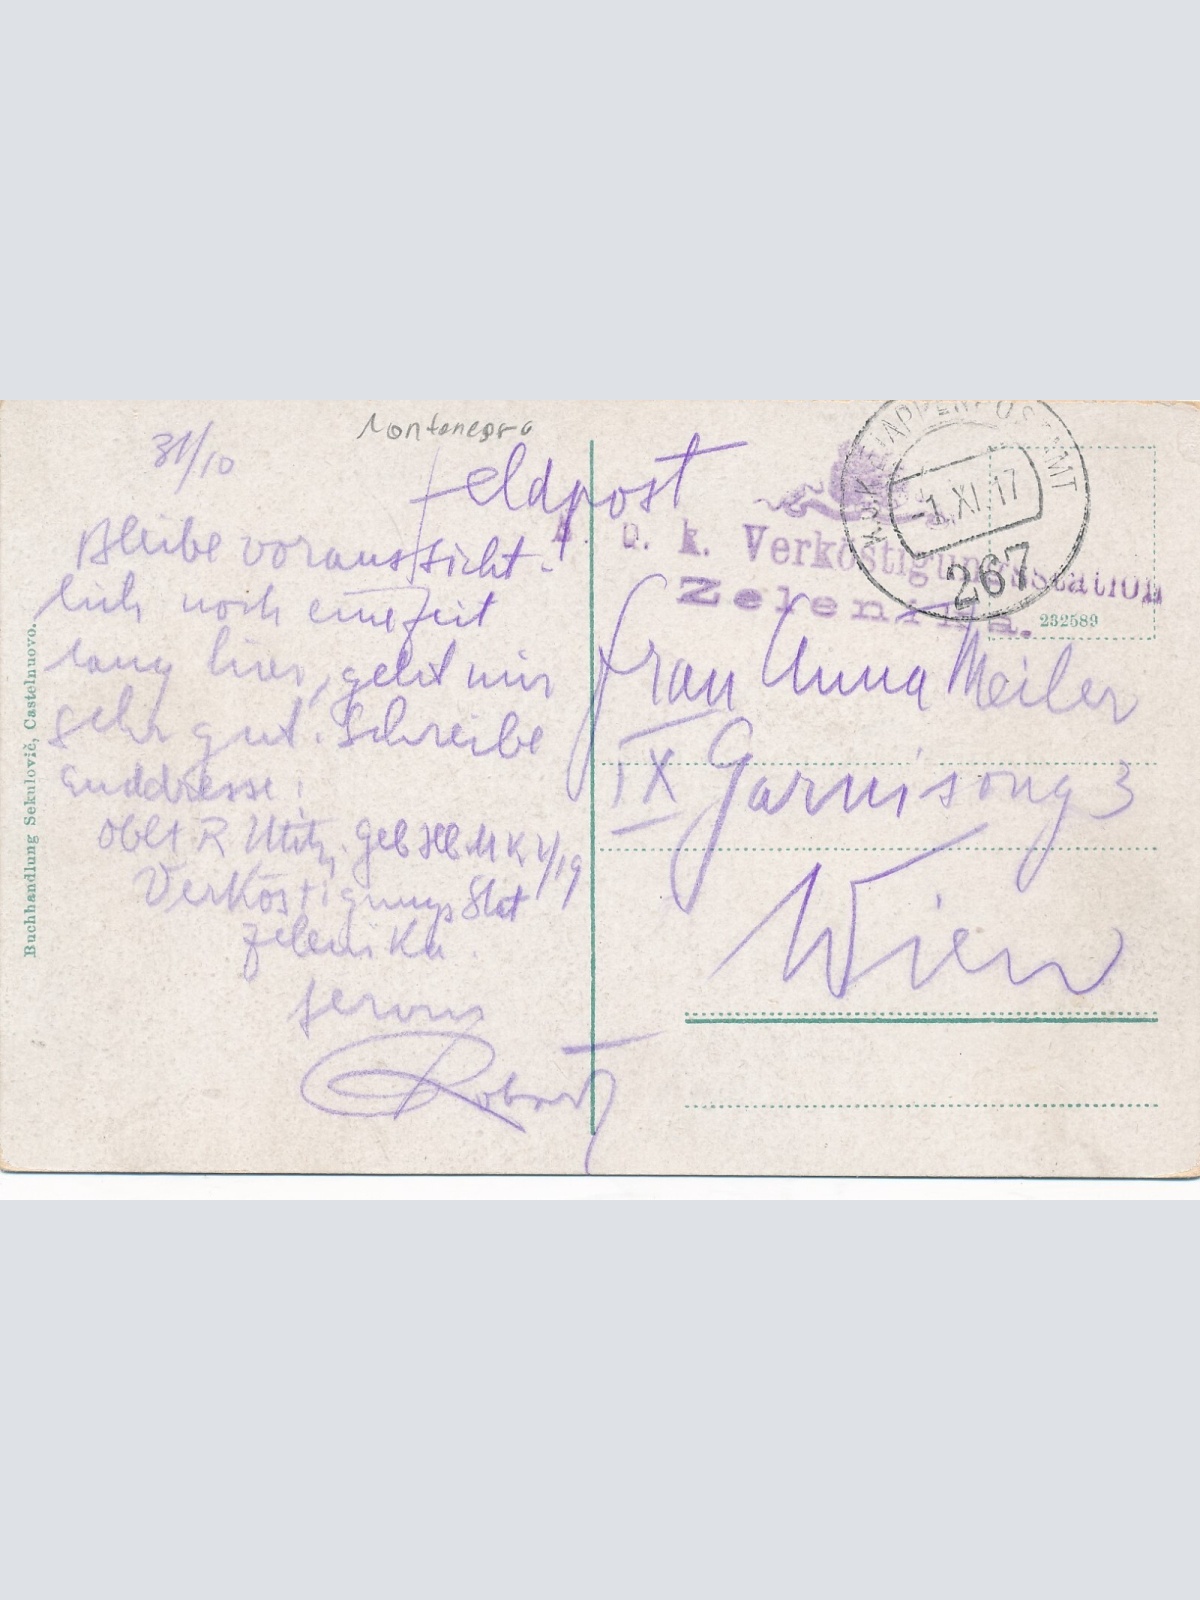 31/10
Montenegro
Feldpost
Bleibe voraussicht-
lich noch eine Zeit
lang hier, geht mir
sehr gut. Schreibe
Enddresse:
Oblt R
Verköstigungs Stat
Zelenika.
Servus
Robert
K.u.K. ETAPPENPOSTAMT
-1.XI.17
267
k. u. k. Verköstigungsstation
Zelenika.
232589
Frau Anna Meiler
IX Garnisong 3
Wien
Buchhandlung Sekulovič, Castelnuovo.